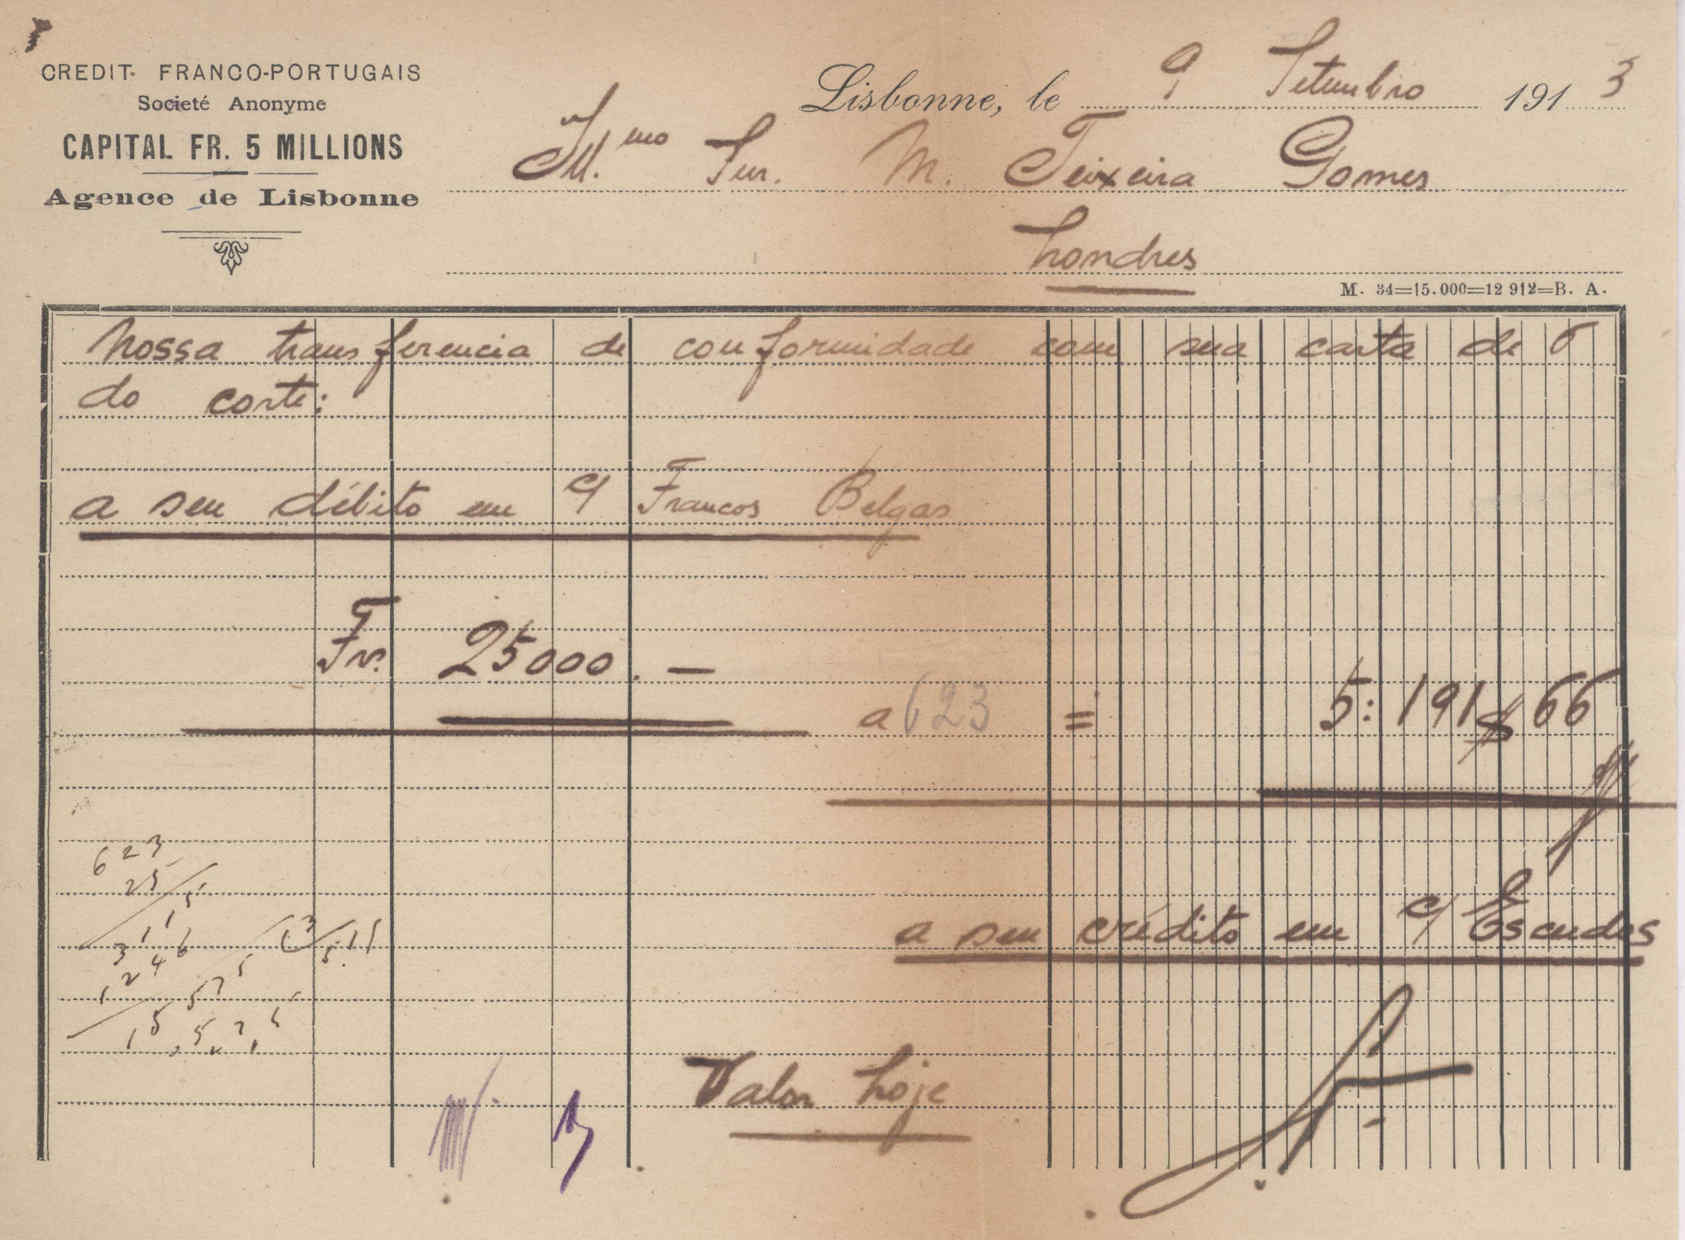 CREDIT FRANCO-PORTUGAIS
Societé Anonyme
CAPITAL FR. 5 MILLIONS
Agence de Lisbonne
Lisbonne, le 9 Setembro 1913
Ill.mo Snr. M. Teixeira Gomes
Londres
M. 34=15.000=12 912=B. A.
Nossa transferencia de conformidade com sua carta de 6
do corte:
a seu débito em c/ Francos Belgas
Frs. 25000.—
a 623 = 5:191$66
623
25
3115
1246
15575
a seu crédito em c/ Escudos
Valor hoje